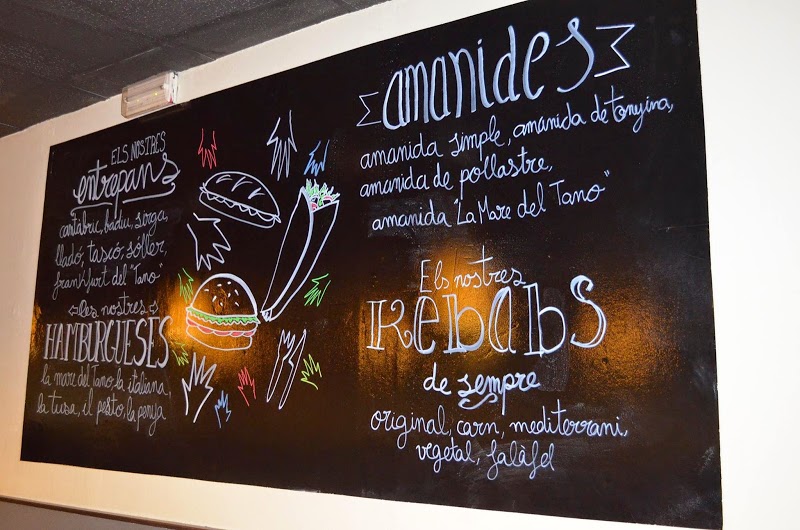 ELS NOSTRES
entrepans
cantàbric, badiu, sorga,
lladó, tascó, sóller,
frankfurt del "Tano"
les nostres
HAMBURGUESES
la mare del Tano, la italiana
la tusa, il pesto, la penja
amanides
amanida simple, amanida de tonyina,
amanida de pollastre,
amanida "La Mare del Tano"
Els nostres
Kebabs
de sempre
original, carn, mediterrani,
vegetal, falàfel